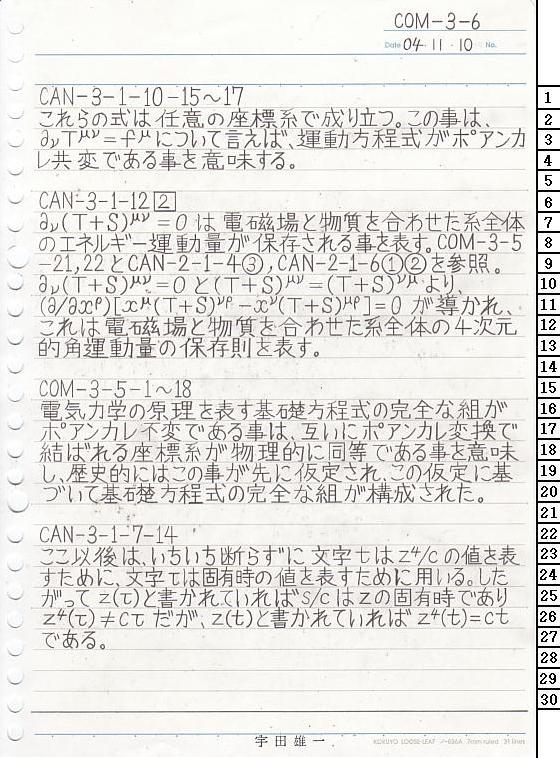 COM-3-6
Date 04・11・10 No.
CAN-3-1-10-15〜17
これらの式は任意の座標系で成り立つ。この事は、
∂νTμν=fμについて言えば、運動方程式がポアンカ
レ共変である事を意味する。
CAN-3-1-12②
∂ν(T+S)μν=0は電磁場と物質を合わせた系全体
のエネルギー運動量が保存される事を表す。COM-3-5
-21,22とCAN-2-1-4③,CAN-2-1-6①②を参照。
∂ν(T+S)μν=0と(T+S)μν=(T+S)νμより、
(∂/∂xρ)[xμ(T+S)νρ-xν(T+S)μρ]=0が導かれ、
これは電磁場と物質を合わせた系全体の4次元
的角運動量の保存則を表す。
COM-3-5-1〜18
電気力学の原理を表す基礎方程式の完全な組が
ポアンカレ不変である事は、互いにポアンカレ変換で
結ばれる座標系が物理的に同等である事を意味
し、歴史的にはこの事が先に仮定され、この仮定に基
づいて基礎方程式の完全な組が構成された。
CAN-3-1-7-14
ここ以後は、いちいち断らずに文字tはz⁴/cの値を表
すために、文字τは固有時の値を表すために用いる。した
がってz(τ)と書かれていればs/cはzの固有時であり
z⁴(τ)≠cτだが、z(t)と書かれていればz⁴(t)=ct
である。
宇田雄一
KOKUYO LOOSE-LEAF ノ-836A 7mm ruled 31 lines
1
2
3
4
5
6
7
8
9
10
11
12
13
14
15
16
17
18
19
20
21
22
23
24
25
26
27
28
29
30